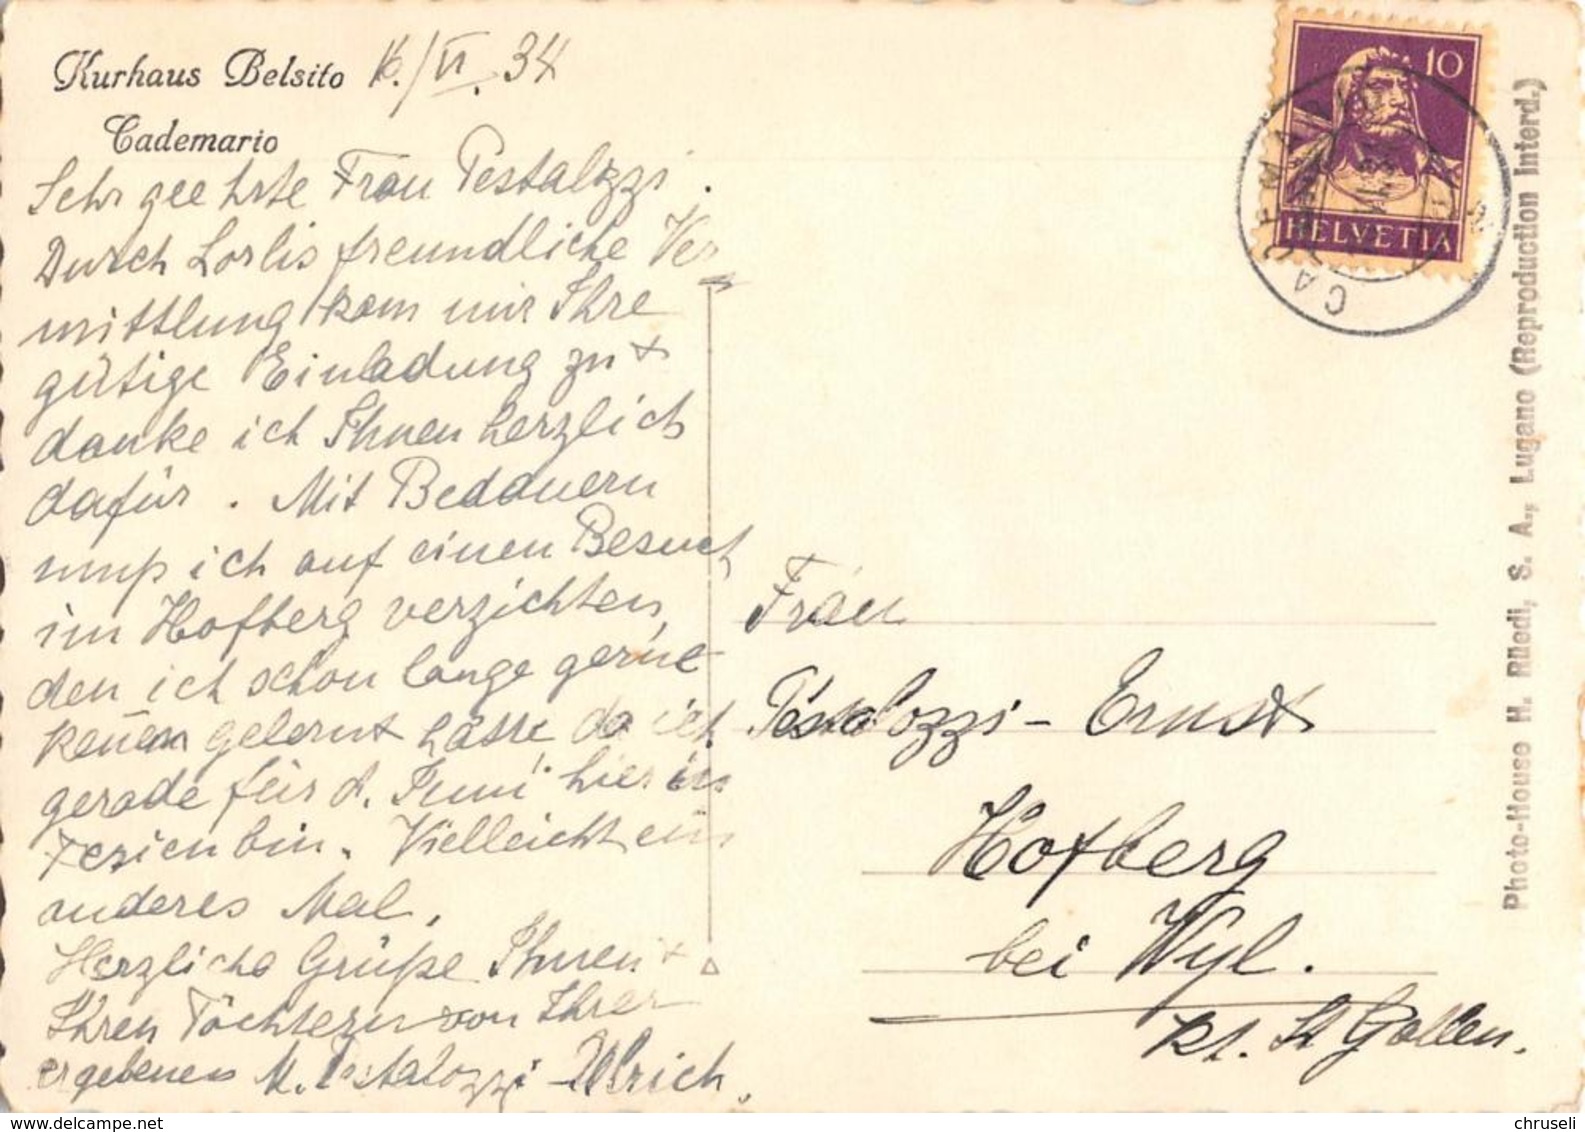 Kurhaus Belsito 16./VI. 34
Cademario
Sehr geehrte Frau Pestalozzi.
Durch Lorlis freundliche Ver
mittlung kam mir Ihre
gütige Einladung zu +
danke ich Ihnen herzlich
dafür. Mit Bedauern
muß ich auf einen Besuch
im Hofberg verzichten,
den ich schon lange gerne
kennen gelernt hätte, da ich
gerade für d. Juni hier in
Ferien bin. Vielleicht ein
anderes Mal.
Herzliche Grüße Ihnen +
Ihren Töchtern von Ihrer
ergebenen M. Pestalozzi-Ulrich.
10
HELVETIA
CADEMARIO
Frau
Pestalozzi-Ernst
Hofberg
bei Wyl.
Kt. St Gallen.
Photo-House H. Rüedi, S. A., Lugano (Reproduction interd.)
www.delcampe.net
chruseli